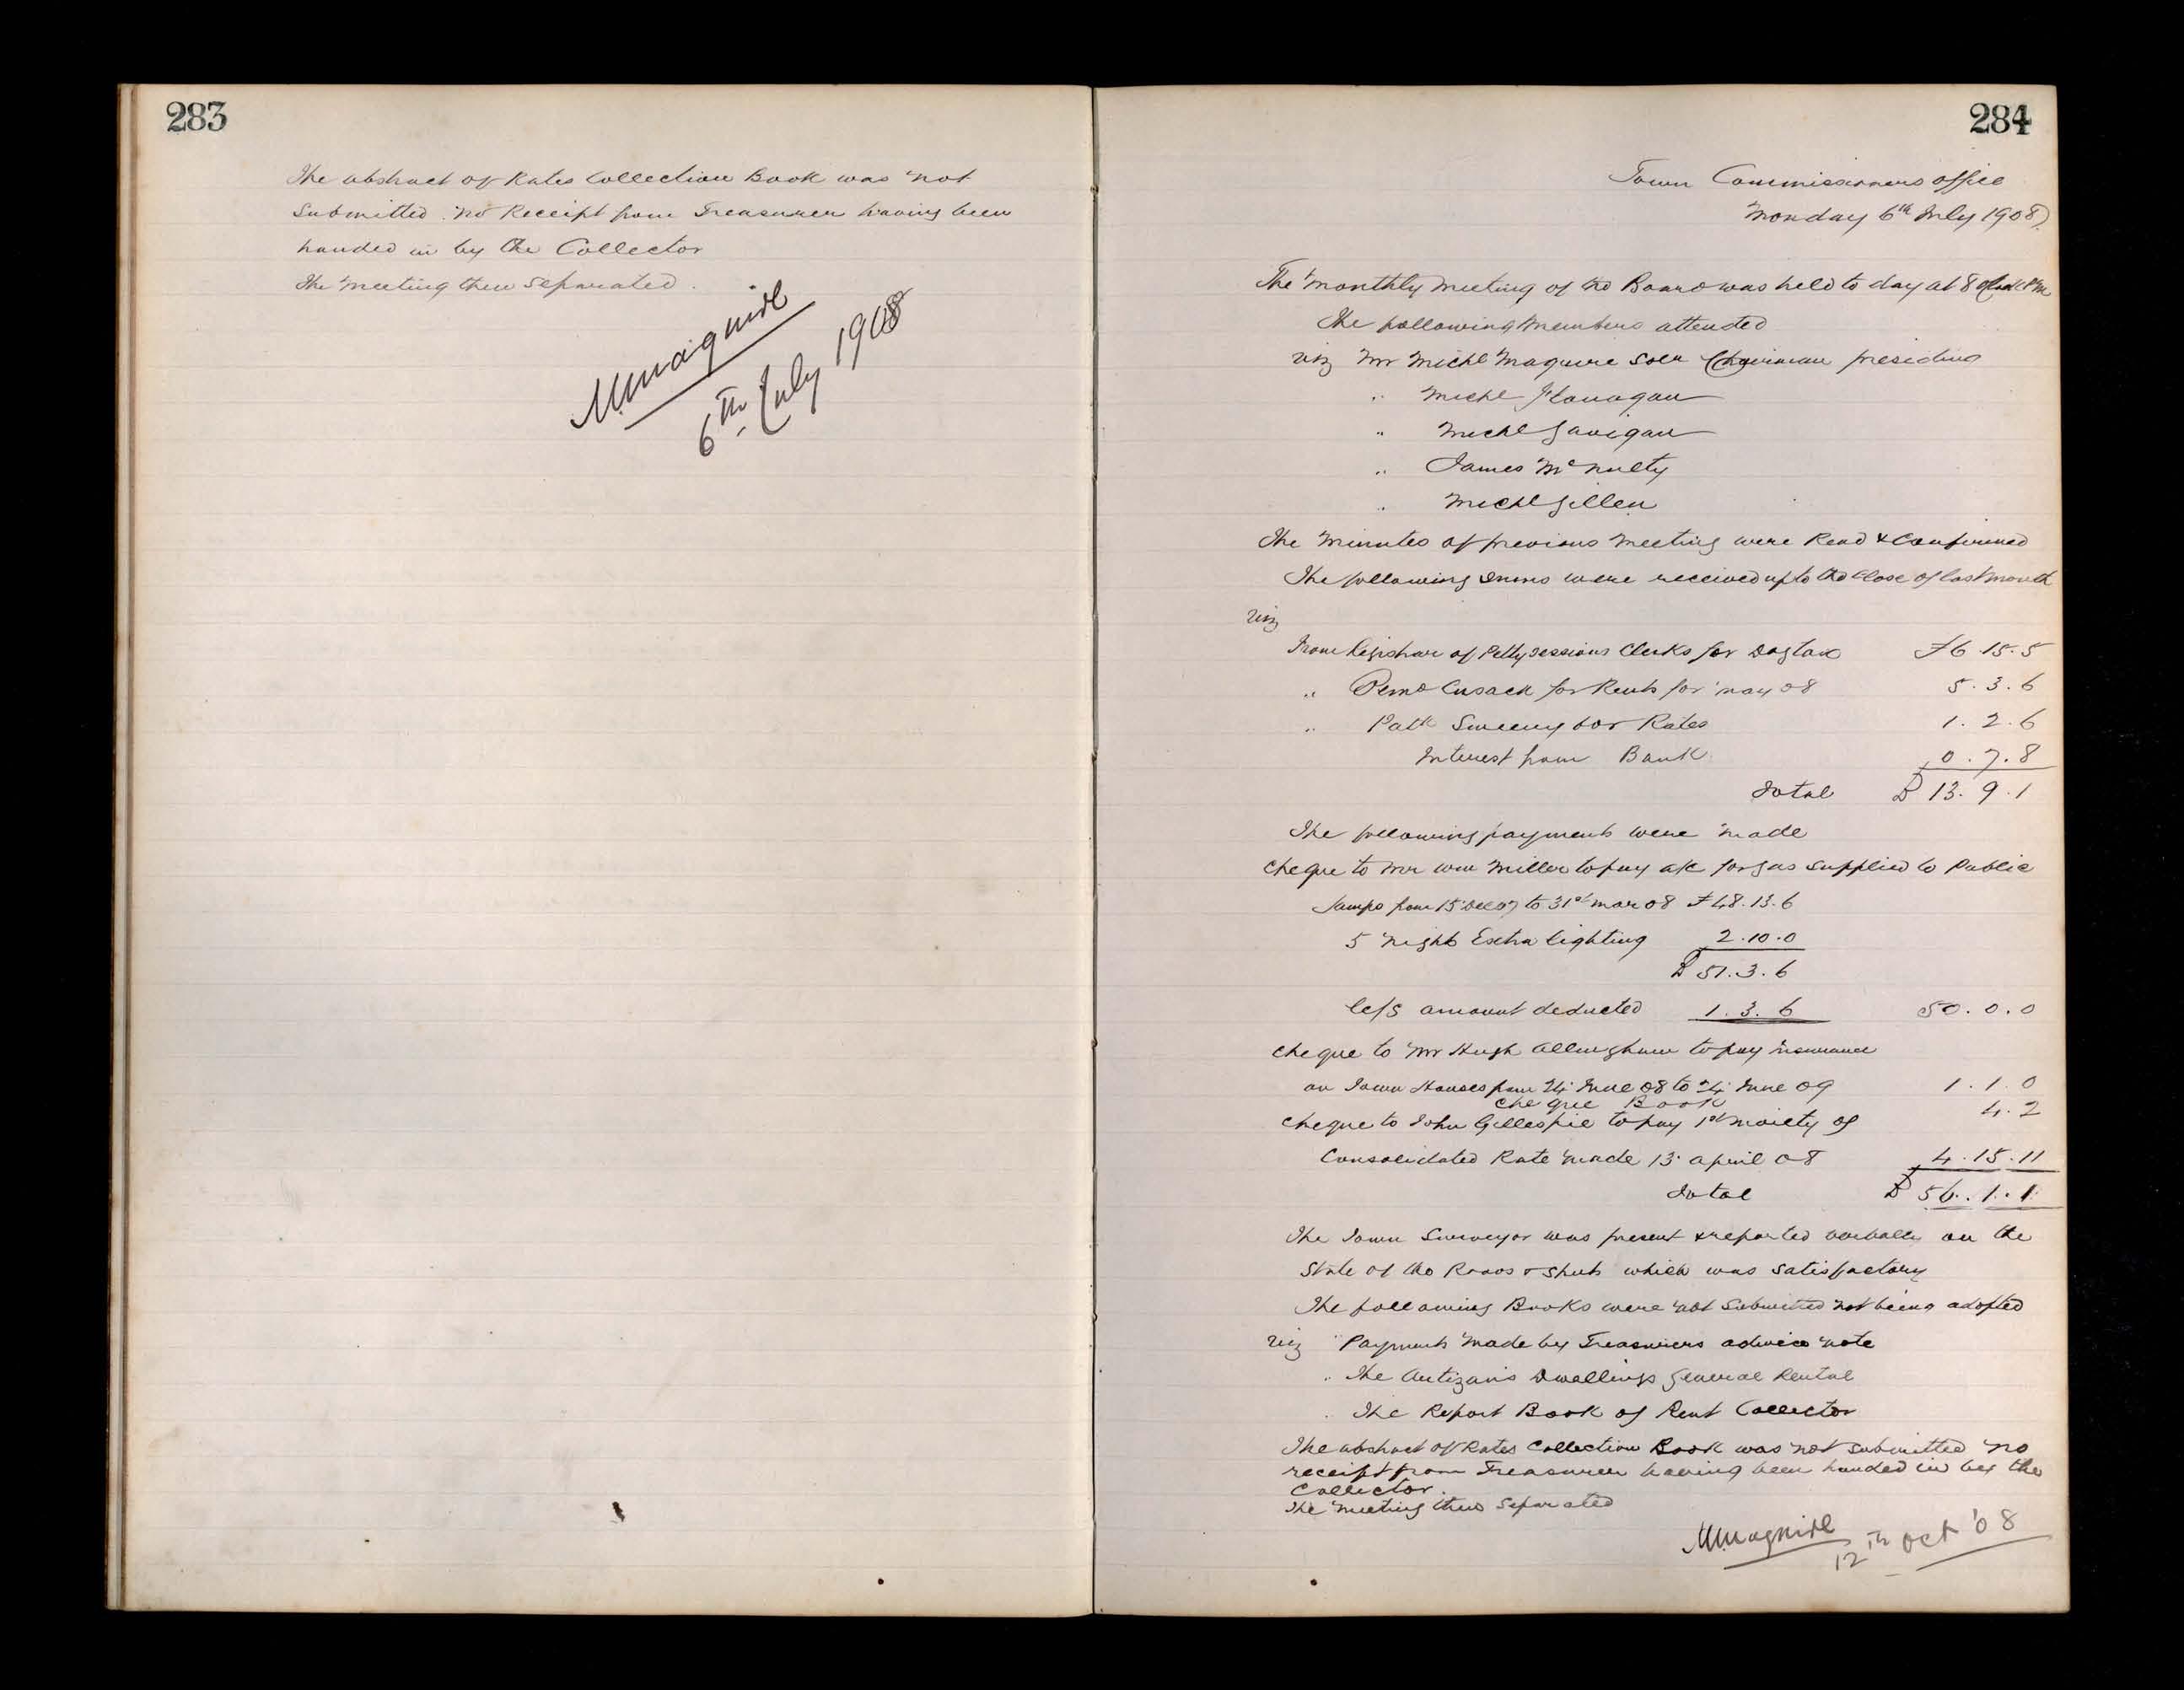 283
The abstract of Rates Collection Book was not
Submitted. no Receipt from Treasurer having been
handed in by the Collector
The meeting then Separated.
MMaguire
6th July 1908
284
Town Commissioners office
Monday 6th July 1908
The monthly meeting of the Board was held to day at 8 oClock PM
The following members attended
viz Mr Michl Maguire Solr Chairman presiding
" Michl Flanagan
" Michl Gavigan
" James McNulty
" Michl Gillen
The Minutes of previous meeting were Read & Confirmed
The following Sums were received up to the Close of last month
viz
From Registrar of Petty Sessions Clerks for Dog tax £6.15.5
" Bernd Cusack for Rents for may 08 5.3.6
" Patk Sweeny for Rates 1.2.6
Interest from Bank 0.7.8
Total £13.9.1
The following payments were made
Cheque to Mr Wm Miller to pay a/c for gas supplied to Public
Lamps from 15 Dec 07 to 31st mar 08 £48.13.6
5 nights Extra lighting 2.10.0
£51.3.6
less amount deducted 1.3.6 50.0.0
Cheque to Mr Hugh Allingham to pay insurance
on Town Houses from 24 June 08 to 24 June 09 1.1.0
Cheque Book 4.2
Cheque to John Gillespie to pay 1st moiety of
Consolidated Rate made 13 april 08 4.15.11
Total £56.1.1
The Town Surveyor was present & reported verbally on the
State of the Roads & Streets which was satisfactory
The following Books were not submitted not being adopted
viz Payments made by Treasurers advice note
" The Artizans Dwellings General Rental
" The Report Book of Rent Collector
The abstract of Rates Collection Book was not submitted no
receipt from Treasurer having been handed in by the
Collector.
The meeting then Separated
MMaguire
12th Oct '08